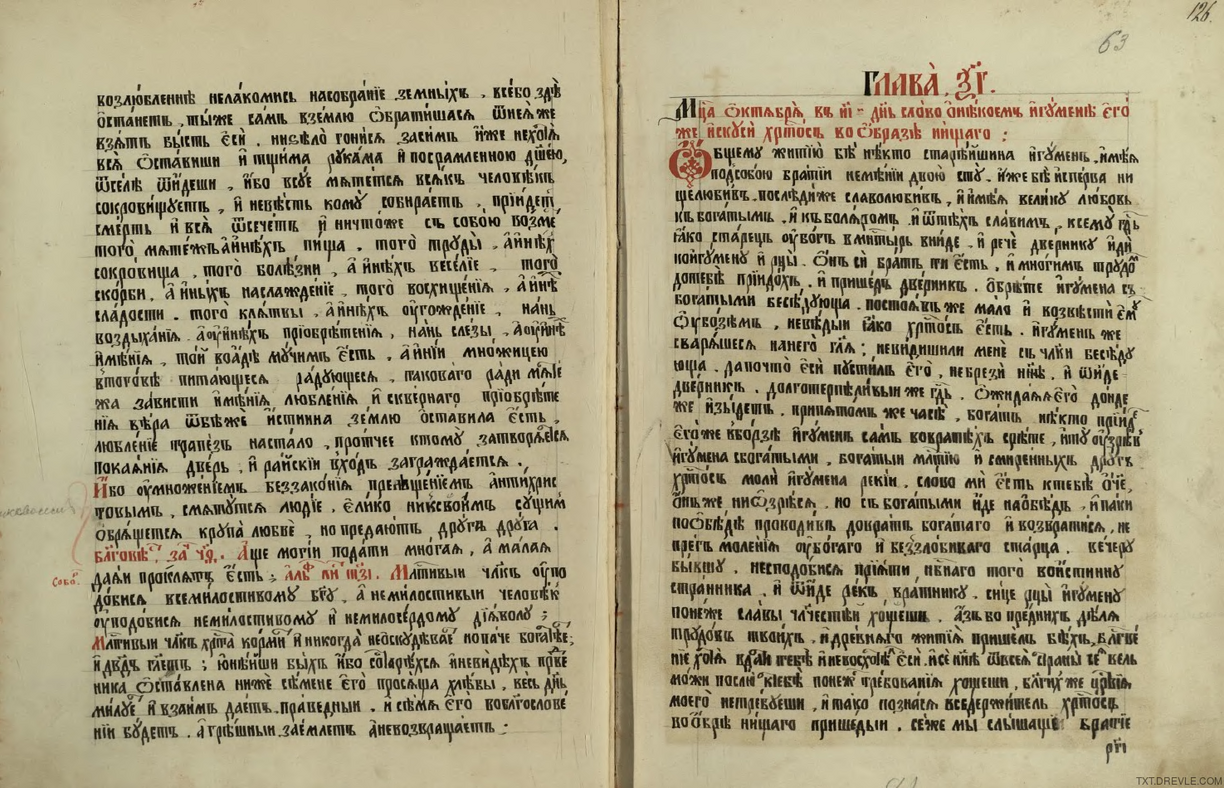 возлюбленнїе нелакомись насобранїе земныхъ . всебо здѣ
ѡстанетъ , тыже самъ вземлю ѡбратишася ѿнеѧже
взѧтъ бысть еси . инѕѣло гонисѧ
всѧ ѡставиши и тщима рукама и посрамленною дш҃ею,
ѿселѣ ѿидеши , ибо всуе мѧтетсѧ всѧкъ человѣкъ
сокровищуетъ , и невѣсть кому собираетъ , прїидетъ
смерть и всѧ ѿсечетъ и ничтоже съ собою возме
того мѧтежъ аинѣхъ пища . того труды . аинѣх
сокровища , того болѣзни , а инѣхъ веселїе , того
скорби , а иныхъ наслажденїе , того восхищенїѧ , аинѣ
сладости . того клѧтвы , аинѣхъ угожденїе , нань
воздыханїѧ . аоуинѣхъ прїобрѣтенїѧ , нань слезы , аоуинѣ
имѣнїѧ , той воадѣ мучимъ есть . а инїи множицею
питающесѧ радующесѧ , таковаго ради
жа зависти имѣнїѧ любленїѧ и сквернаго прїобрѣте
нїѧ вѣра ѿбѣже истинна землю ѡставила есть ,
любленїе трапезъ настало , протчее ктому затворѧетсѧ
покаѧнїѧ дверь , и райскїи входъ заграждаетсѧ .
Ибо оумноженїемъ беззаконїѧ прелщенїемъ антихрис
товымъ , смѧтутсѧ людїе , елико никсвоимъ сущим
обрѧщетсѧ крупа любве , но предаютъ друга друга .
благовѣс , за ч҃ѳ . Аще могїи подати многаѧ , а малаѧ
даѧи проклѧтъ есть : Мл҃тивыи члкъ оупо
добисѧ всемилостивому бг҃у , а немилостивыи человѣкъ
оуподобисѧ немилостивому и немилосердому дїѧволу :
Мл҃тивыи члкъ хр҃та кормѧ и никогда неѡскудѣвае но паче богатѣе ;
и дв҃дъ гл҃етъ : юнѣйши быхъ ибо состарѣхсѧ и невидѣхъ прве
ника ѡставлена ниже сѣмене его просѧща хлѣбы , весь дн҃ь
милуе и взаимъ даетъ . праведныи . и сѣмѧ его воблгослове
нїи будетъ . а грѣшныи заемлетъ аневозвращаетъ :
Собо
126.
63
Глава , ѯ҃г .
Мца ѡктѧбрѧ , въ и҃і - дн҃ь слово ѡнѣкоемъ игуменѣ его
же искуси хр҃тосъ во ѡбразѣ нищаго :
Общему житїю бѣ нѣкто старѣйшина игуменъ , имѣѧ
подсобою братїи немнѣи двою сту . иже бѣ исперва ни
щелюбивъ . послѣдиже славолюбивъ , и имѣѧ велику любовь
къ богатымъ . и къ болѧромъ . и ѿтѣхъ славимъ , ксему гдь
ѧко старецъ оубогъ вмн҃тырь вниде . и рече двернику иди
коигумену и рцы . ѡнъ си братъ ти есть , и многимъ трудо
дотебѣ прїидохъ . и пришедъ дверникъ . обрѣте игумена съ
богатыми бесѣдующа . постоѧвъ же мало и возвѣсти ем
ѡубозѣмъ , невѣдыи ѧко хр҃тосъ есть . игуменъ же
сварѧшесѧ нанего гл҃ѧ : невидишили мене съ члки бесѣду
юща . дапочто еси пустилъ его , небрези нн҃ѣ . и ѿиде
дверникъ . долготерпѣливыи же гдь . ѡжидаѧ его донде
же изыдетъ . прииѧтомъ же часѣ , богатъ нѣкто прїиде
егоже вборзѣ игуменъ самъ вовратѣхъ срѣте , и ту оузрѣвъ
игумена сбогатыми , богатыи млтїю и смиренныхъ другъ
хр҃тосъ моли игумена рекїи . слово ми есть ктебѣ ѡ҃че ,
ѡнъже ниѡзрѣсѧ . но съ богатыми иде наобѣдъ , и паки
поѡбѣдѣ проводивъ довратъ богатаго и возвратисѧ , не
брегъ моленїѧ оубогаго и беззлобиваго старца . вечеру
бывшу . несподобисѧ прїѧти , странника , и ѿиде рекъ , вратнику . сице рцы игумену
понеже славы члчестѣи хощеши . азъ во преднихъ дѣлѧ
трудовъ твоихъ , и древнѧго житїѧ пришелъ бѣхъ , блгве
нїе , и невосхотѣ еси , и се нн҃ѣ ѿвсеѧ страны се вель
можи послю ктебѣ понеж требованїѧ хощеши , блгихъ же цр҃твїѧ
моего нетребуеши , и тако познасѧ вседержитель хр҃тосъ
во ѡбразѣ нищаго пришедыи . сеже мы слышаще братїе
TXT.DREVLE.COM